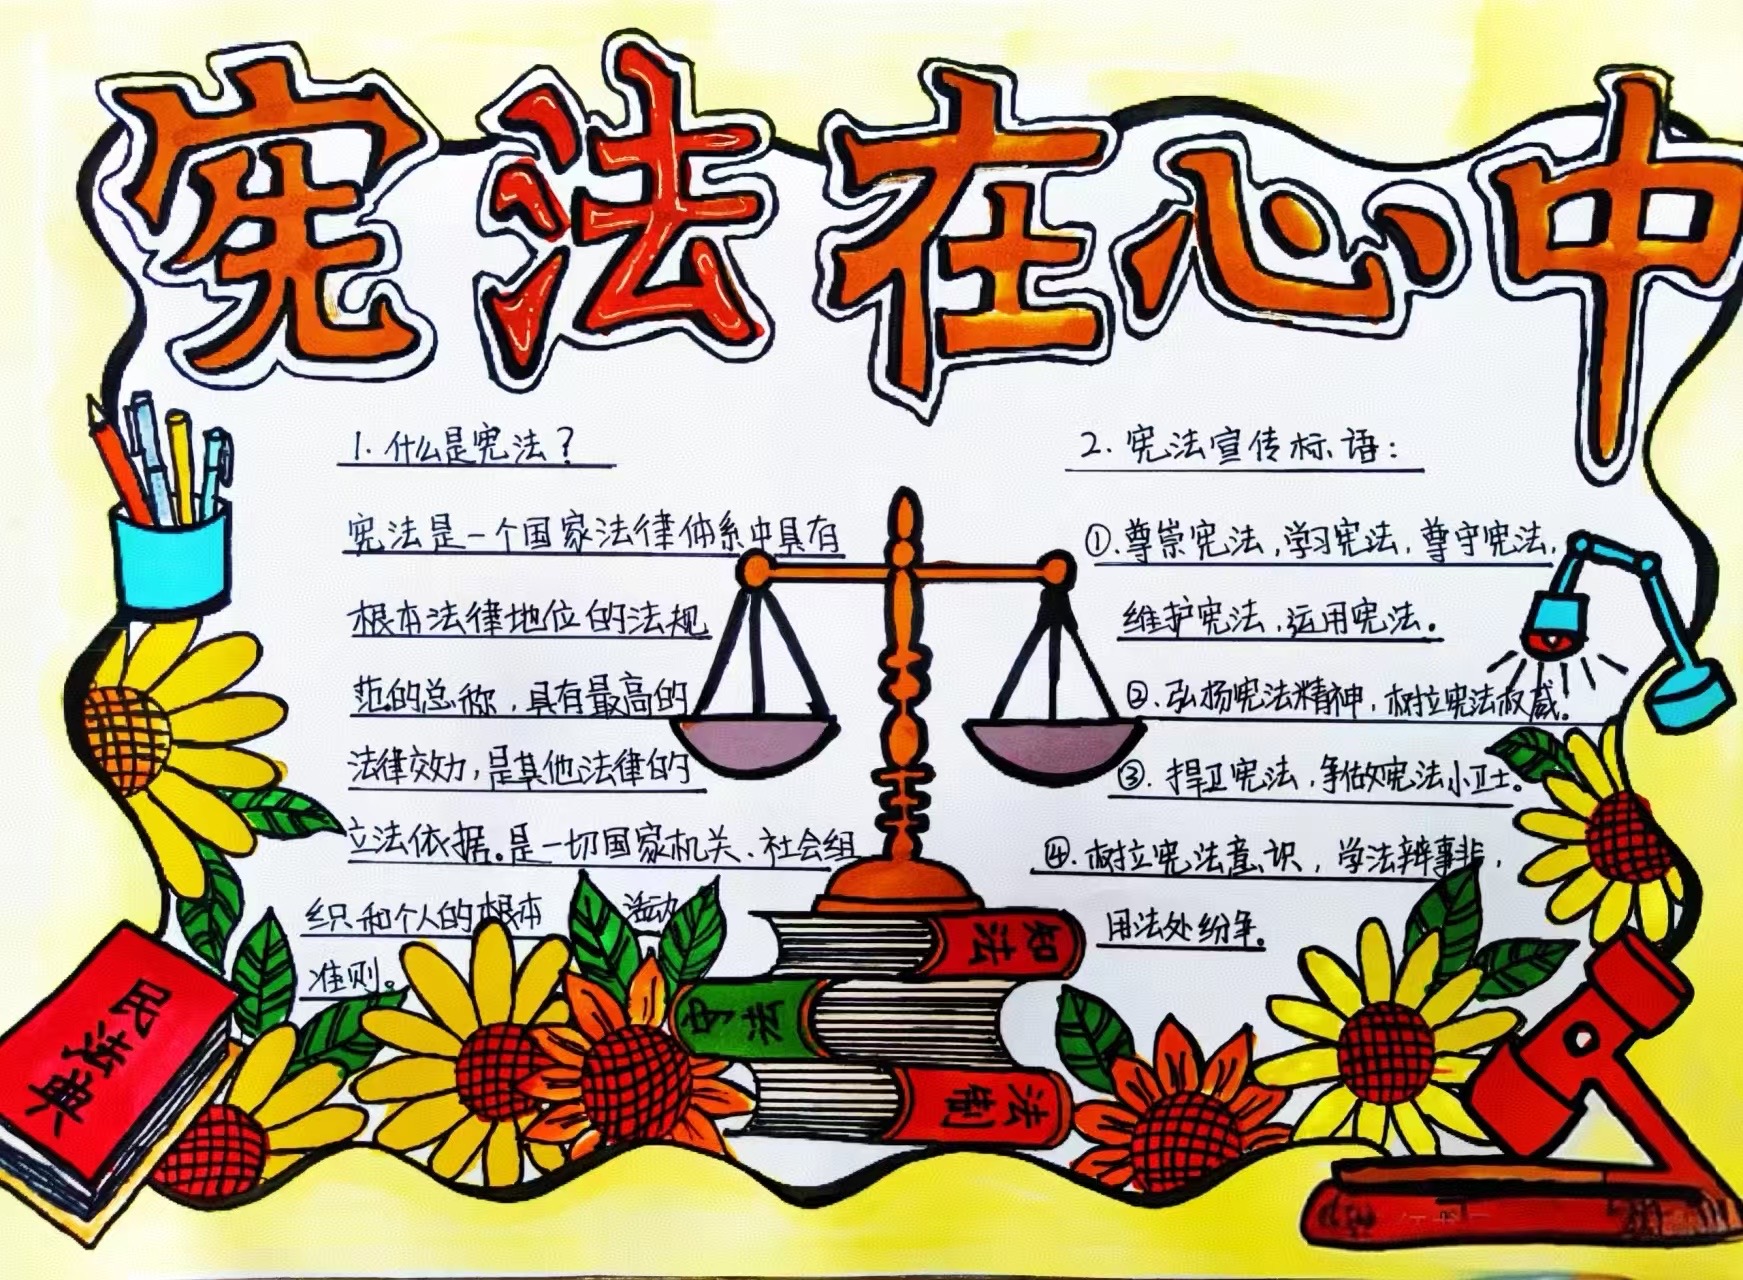 宪法在心中
1. 什么是宪法?
宪法是一个国家法律体系中具有
根本法律地位的法规
范的总称,具有最高的
法律效力,是其他法律的
立法依据。是一切国家机关、社会组
织和个人的根本 活动
准则。
2. 宪法宣传标语:
①.尊崇宪法,学习宪法,尊守宪法,
维护宪法,运用宪法。
②.弘扬宪法精神,树立宪法权威。
③.捍卫宪法,争做宪法小卫士。
④.树立宪法意识,学法辨事非,
用法处纷争。
民法典
知法
法制